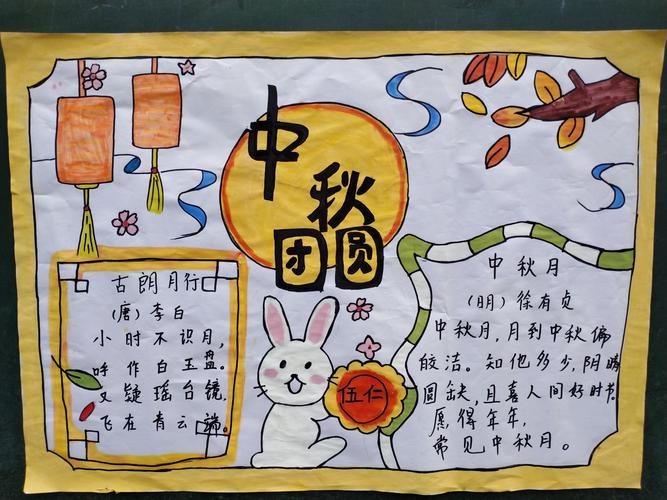 中
秋
团圆
古朗月行
(唐)李白
小时不识月,
呼作白玉盘。
又疑瑶台镜,
飞在青云端。
伍仁
中秋月
(明)徐有贞
中秋月,月到中秋偏
皎洁。知他多少,阴晴
圆缺,且喜人间好时节。
愿得年年,
常见中秋月。